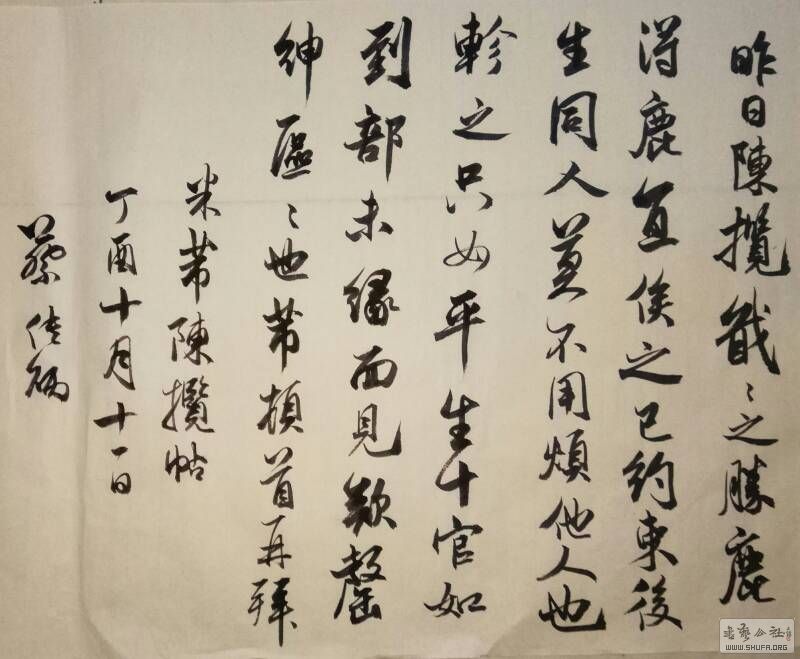 昨日陳攬戢々之勝鹿
得鹿宜俟之已約束後
生同人莫不用煩他人也
軫之只如平生十官如
到部未緣面見欵罄
紳區々也芾頓首再拜
米芾陳攬帖
丁酉十月十一日
蔡傳炳
書藝公社
WWW.SHUFA.ORG